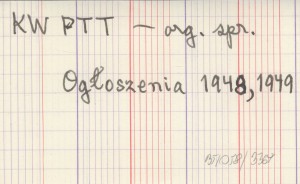 KW PTT – org. spr.
Ogłoszenia 1948, 1949